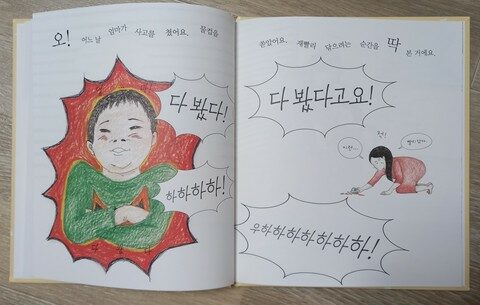 오! 어느 날 엄마가 사고를 쳤어요. 물컵을
다 봤다!
하하하하!
쏟았어요. 재빨리 닦으려는 순간을 딱 본 거예요.
다 봤다고요!
헛!
이런...
빨리 닦자.
우하하하하하하하!